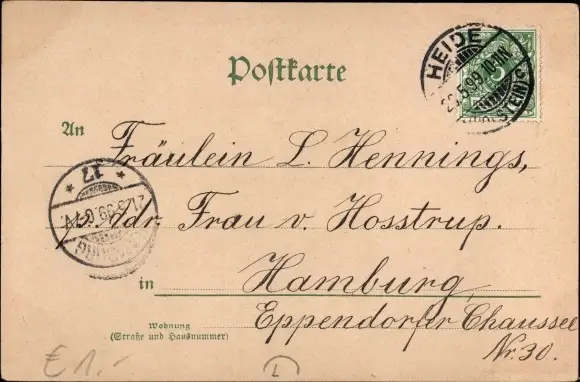 Postkarte
HEIDE
5.99.
(HOLSTEIN) c
5
An
Fräulein L. Hennings,
p. adr. Frau v. Hosstrup.
* 17 *
HAMBURG
in Hamburg,
Eppendorfer Chaussee
Nr. 30.
Wohnung
(Straße und Hausnummer)
€ 1.-
L